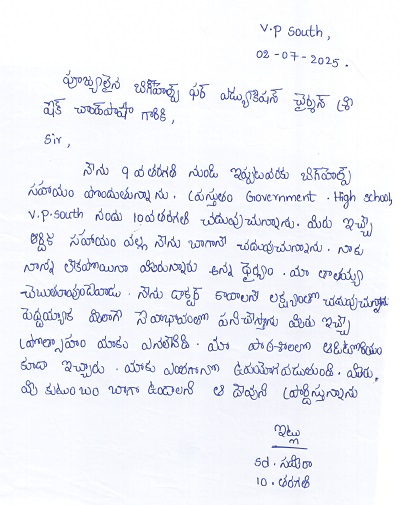 V.P South,
02-07-2025.
పూజ్యులైన బిగ్‌హెల్ప్ ఫర్ ఎడ్యుకేషన్ ఛైర్మన్ శ్రీ
షేక్ చాంద్‌పాషా గారికి,
Sir,
నేను 9 వ తరగతి నుండి ఇప్పటివరకు బిగ్‌హెల్ప్
సహాయం పొందుతున్నాను. ప్రస్తుతం Government. High school,
V.P-South నందు 10వతరగతి చదువుచున్నాను. మీరు ఇచ్చే
ఆర్ధిక సహాయం వల్ల నేను బాగానే చదువుచున్నాను. నాకు
నాన్న లేకపోయినా మీరున్నారు అన్న ధైర్యం. మా తాతయ్య
చెబుతూవుండేవాడు. నేను డాక్టర్ కావాలనే లక్ష్యంతో చదువుచున్నాను
పెద్దయ్యాక మీలాగే సేవాభావంతో పనిచేస్తాను మీరు ఇచ్చే
ప్రోత్సాహం మాకు ఎనలేనిది. మా పాఠశాలలో ఆడిటోరియం
కూడా ఇచ్చారు. మాకు ఎంతగానో ఉపయోగపడుతుంది. మీరు,
మీ కుటుంబం బాగా ఉండాలని ఆ దేవుని ప్రార్ధిస్తున్నాను
ఇట్లు
sd. సమీరా
10. తరగతి